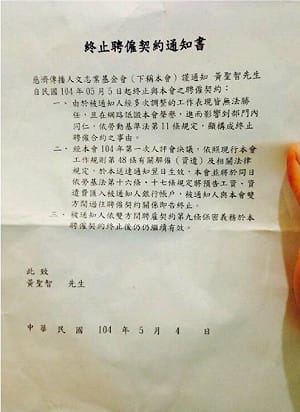 終止聘僱契約通知書
慈濟傳播人文志業基金會(下稱本會)謹通知 黃聖智先生
自民國 104 年 05 月 5 日起終止與本會之聘僱契約:
一、由於被通知人經多次調整的工作表現皆無法勝
任,且在網路低譭本會聲譽,進而影響到部門內
同仁,依勞動基準法第 11 條規定,顯構成終止
聘任合約之事由。
二、經本會 104 年第一次人評會決議,依照現行本會
工作規則第 48 條有關解僱(資遣)及相關法律
規定,於本送達通知翌日生效,本會並將於同日
依勞基法第十六條,十七條規定將預告工資,資
遣費匯入被通知人銀行帳戶,被通知人與本會雙
方間過往聘僱契約關係即告終止。
三、被通知人依雙方間聘雇契約第九條保密義務於本
聘僱契約終止後仍繼續有效。
此 致
黃聖智 先生
中 華 民 國 104 年 5 月 4 日